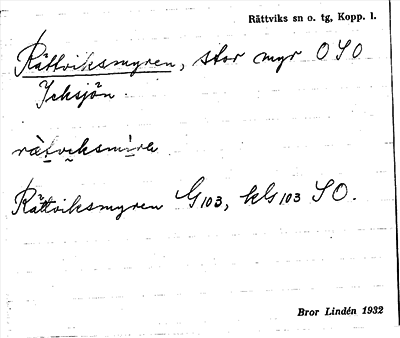 Rättviks sn o. tg, Kopp. l.
Rättviksmyren, stor myr OSO
Icksjön.
rätveksmirẹ
Rättviksmyren G103, kbl 103 SO.
Bror Lindén 1932